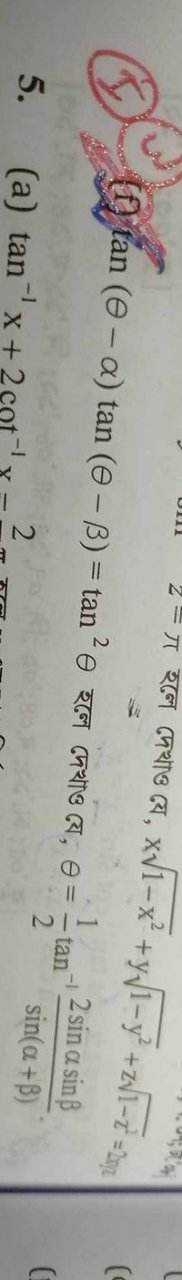 2 = π হলে দেখাও যে, x√1−x² + y√1−y² + z√1−z² = 2xyz
(f) tan (θ − α) tan (θ − β) = tan² θ হলে দেখাও যে, θ = 1/2 tan⁻¹ 2 sin α sin β / sin(α + β).
5. (a) tan⁻¹ x + 2 cot⁻¹ x = 2